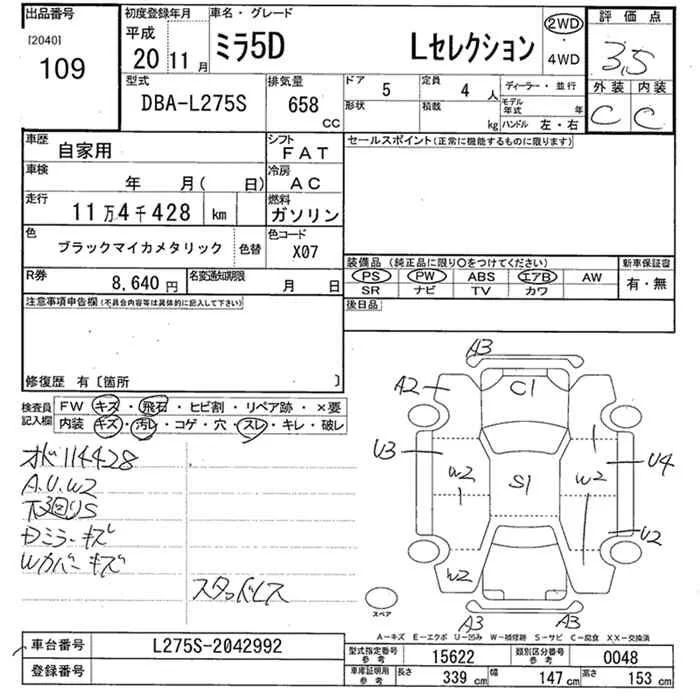 出品番号
[2040]
109
初度登録年月
平成
20 11 月
車名・グレード
ミラ5D Lセレクション
2WD
・
4WD
評価点
3.5
外装 内装
C C
型式
DBA-L275S
排気量
658
CC
ドア 5
定員 4 人
形状
積載 kg
ディーラー・並行
モデル年式 年
ハンドル 左・右
車歴
自家用
シフト
FAT
車検
年 月( 日)
冷房
AC
走行
11万4千428 km
燃料
ガソリン
色
ブラックマイカメタリック
色替
色コード
X07
R券
8,640 円
名変通知期限
月 日
セールスポイント(正常に機能するものに限ります)
装備品(純正品に限り○をつけてください)
PS PW ABS エアB AW
SR ナビ TV カワ
新車保証書
有・無
後日品
注意事項申告欄(不具合内容等は具体的に記入して下さい)
修復歴 有〔箇所 〕
検査員
記入欄
FW キズ・飛石・ヒビ割・リペア跡・×要
内装 キズ・汚レ・コゲ・穴・スレ・キレ・破レ
114428
A.U.W2
下回りS
Dミラーキズ
Wカバーキズ
スタッドレス
A3
A2
C1
U3
W2
S1
W2
U4
U2
W2
A3
A3
スペア
A-キズ E-エクボ U-凹み W-補修跡 S-サビ C-腐食 XX-交換済
車台番号
L275S-2042992
登録番号
型式指定番号
参考
15622
類別区分番号
参考
0048
車庫証明用
参考
長さ 339 cm
幅 147 cm
高さ 153 cm